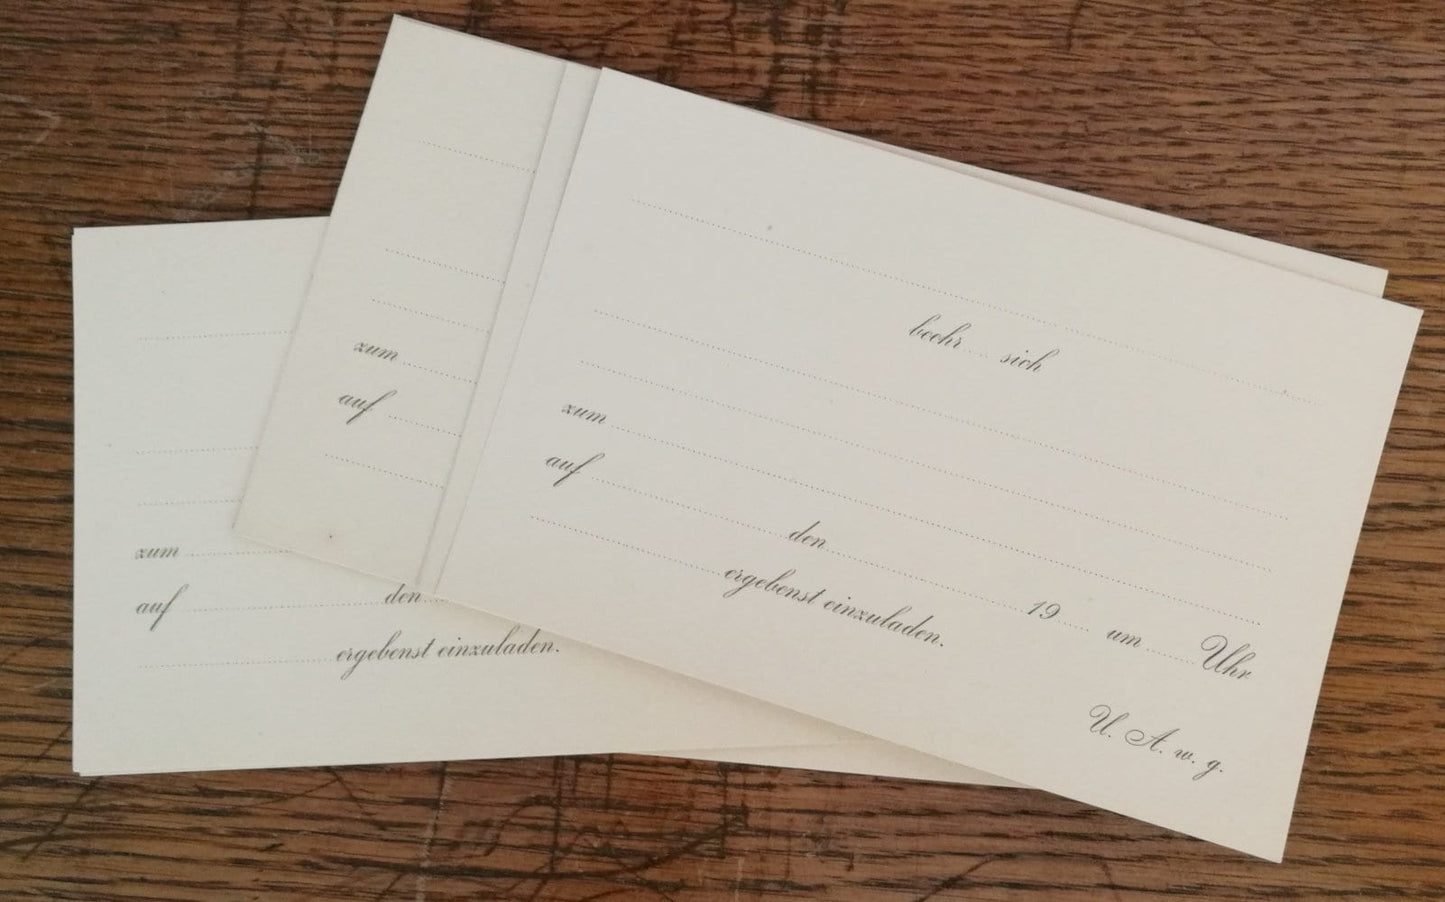 beehr.... sich
zum
auf den 19 um Uhr
ergebenst einzuladen.
U. A. w. g.
zum
auf
zum
auf den
ergebenst einzuladen.